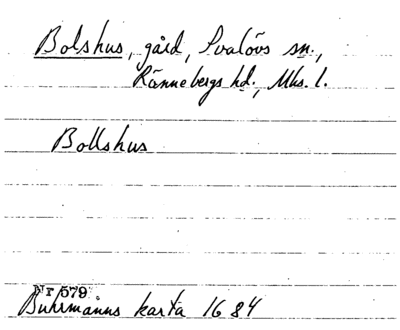 Bolshus, gård, Svalövs sn.,
Rönnebergs hd., Mhs. l.
Bollshus
Nr 579
Buhrmanns karta 1684